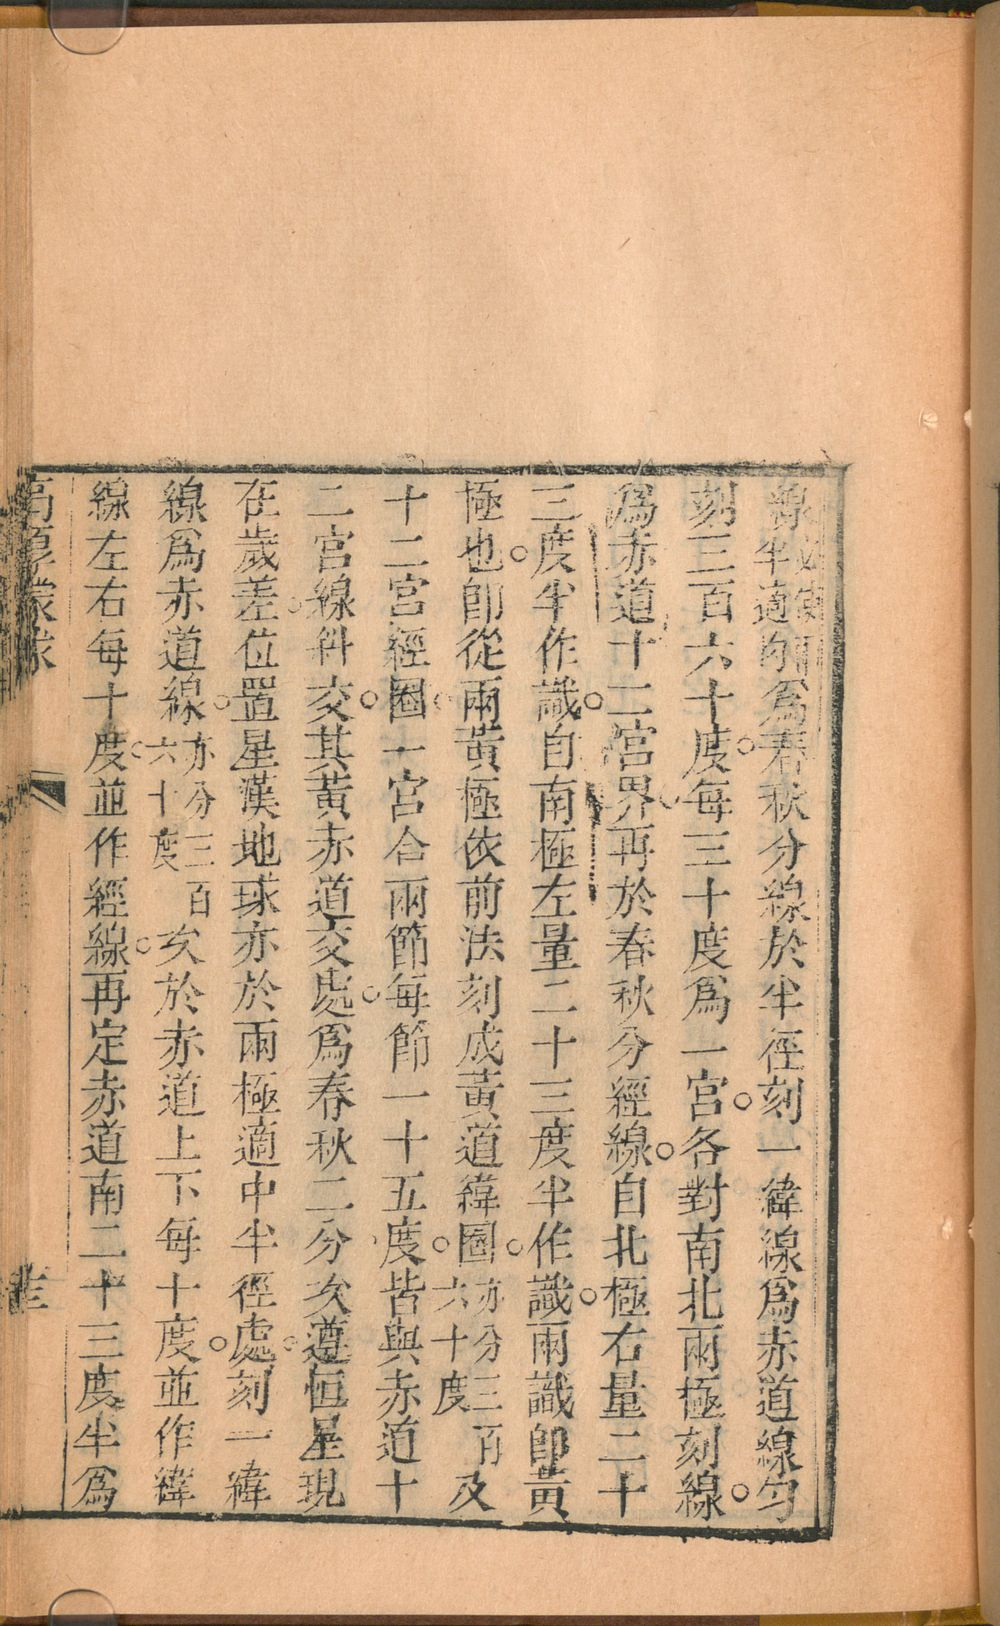 線半適 爲春秋分線於半徑刻一緯線爲赤道線勻
刻三百六十度每三十度爲一宮各對南北兩極刻線
爲赤道十二宮界再於春秋分經線自北極右量二十
三度半作識自南極左量二十三度半作識兩識卽黃
極也卽從兩黃極依前法刻成黃道緯圈亦分三百六十度及
十二宮經圈一宮合兩節每節一十五度皆與赤道十
二宮線斜交其黃赤道交處爲春秋二分次遵恒星現
在歲差位置星漢地球亦於兩極適中半徑處刻一緯
線爲赤道線亦分三百六十度次於赤道上下每十度並作緯
線左右每十度並作經線再定赤道南二十三度半爲
高厚蒙求